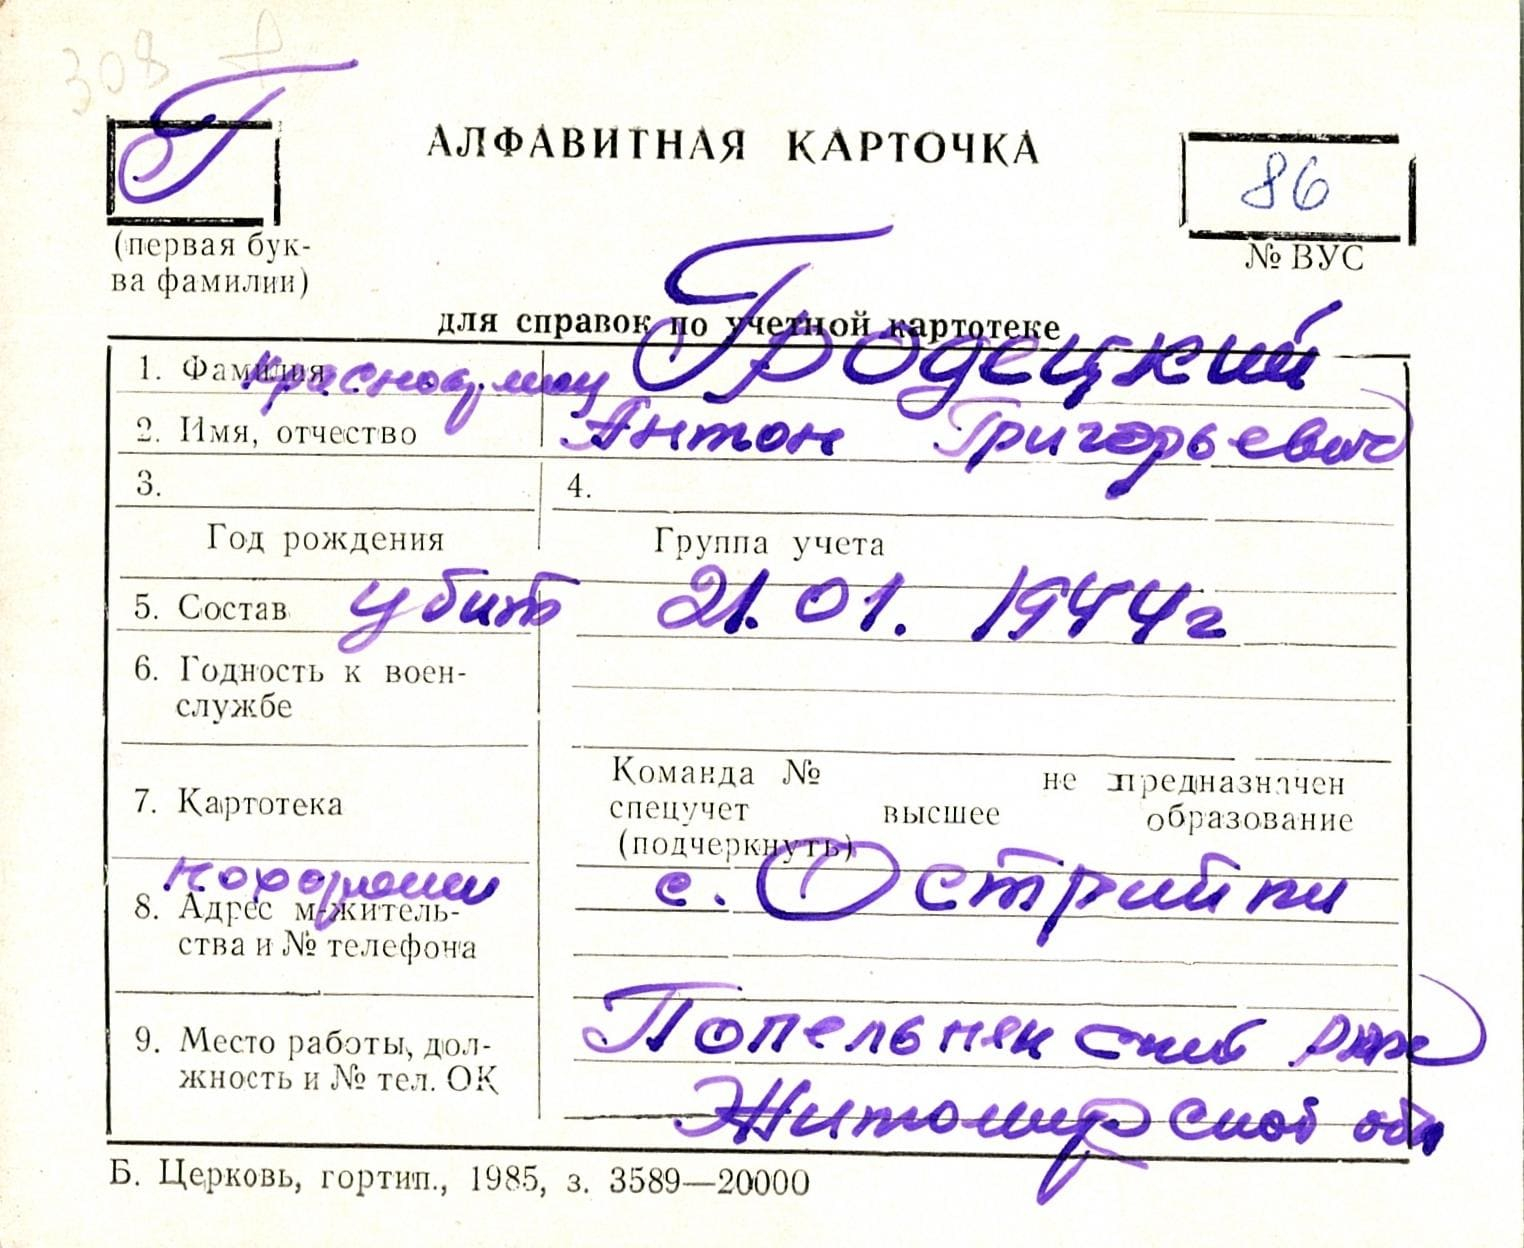 308
Г
АЛФАВИТНАЯ КАРТОЧКА
86
(первая бук-
ва фамилии)
№ ВУС
для справок по учетной картотеке
1. Фамилия
красноармеец Гродецкий
2. Имя, отчество Антон Григорьевич
3. 4.
Год рождения Группа учета
5. Состав убит 21.01.1944г
6. Годность к воен-
службе
Команда № не предназначен
7. Картотека спецучет высшее образование
(подчеркнуть)
похоронен с. Острийки
8. Адрес м-житель-
ства и № телефона
Попельнянский р-н
9. Место работы, дол-
жность и № тел. ОК
Житомирской обл
Б. Церковь, гортип., 1985, з. 3589—20000